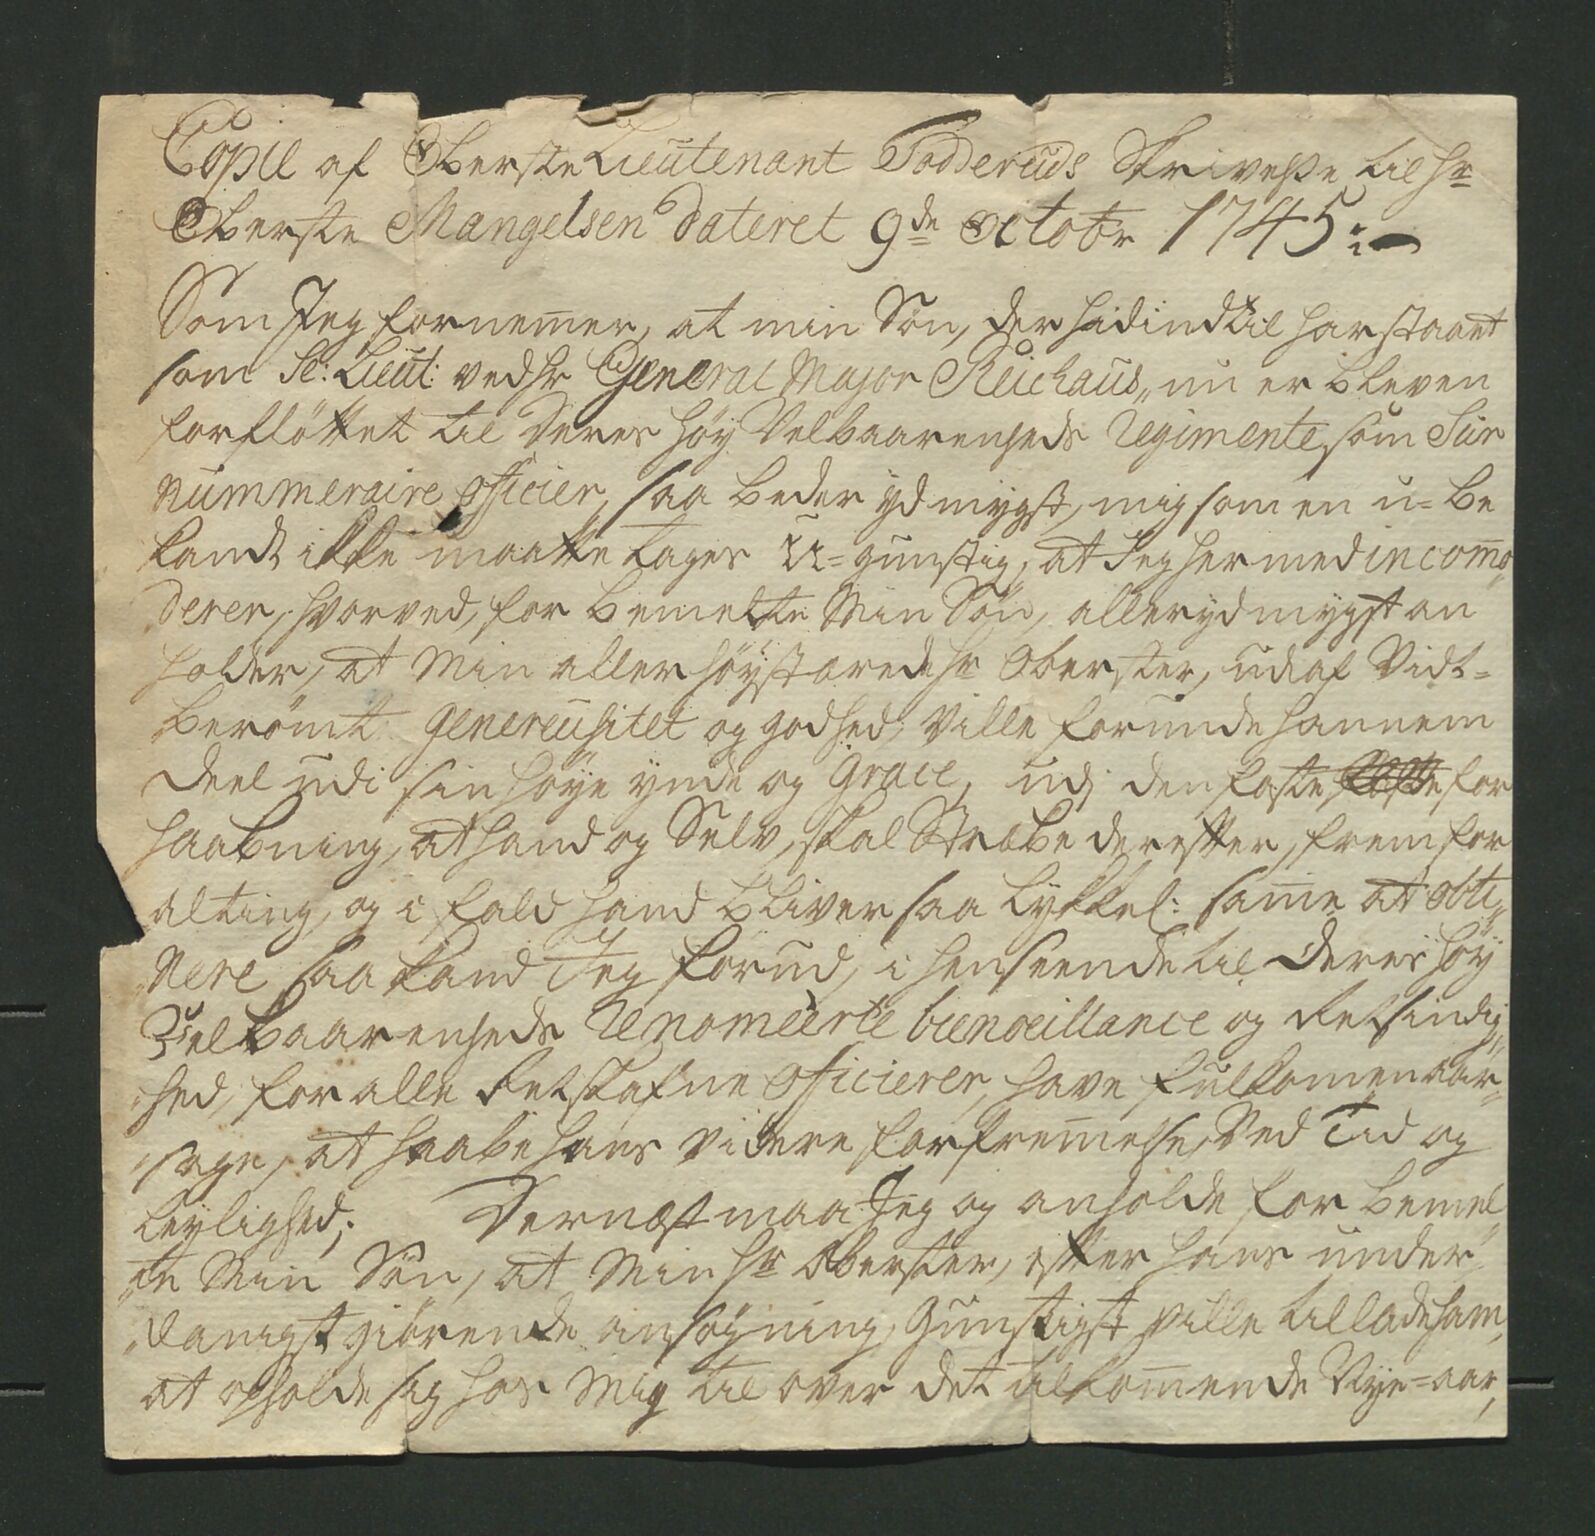 Copie af Oberste Lieutenant Todderuds Skrivelse til Hr
Oberste Mangelsen dateret 9de Octobr 1745:
Som Jeg fornemer, at min Sön, der hidindtil har staaet
som Se: Lieut: ved Hr General Major Reichaus, nu er bleven
forflöttet til Deres Höy Velbaarenheds Regimente, som Sur
nummeraire officier, saa beder ydmygst, mig som en u-be
kandt ikke maatte tages U-gunstig, at Jeg hermed incomo
derer, hvorved, for bemelte Min Sön, allerydmygst an
holder, at Min allerhöystærede Hr Oberster, udaf Vidt-
berömt genereusitet og godhed, Ville forunde hannem
Deel udi sin höye ynde og Grace, udj den faste for
haabning, at hand og Selv, skal Stræbe derefter, frem for
alting, og i fald hand bliver saa lykkel: same at obti
nere, saa kand Jeg forud, i henseende til Deres Höy
Velbaarenheds Renomeerte bienveillance og Retsindig
hed, for alle Retskafne officierer, have fulkomen aar-
sage, at haabe hans videre forfremelse, Ved Tid og
leylighed; Dernæst maa Jeg og anholde for bemel
te Min Sön, at Min Hr Oberster, efter hans under
danigst giörende ansögning, Gunstigst ville tillade ham,
at opholde sig hos Mig til over det tilkomende Nye-aar,